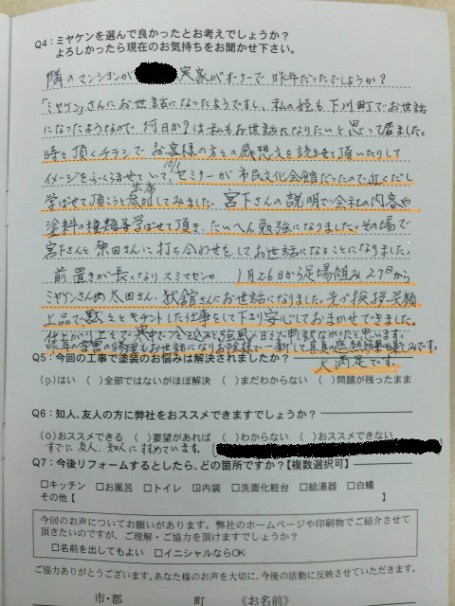 Q4：ミヤケンを選んで良かったとお考えでしょうか？
よろしかったら現在のお気持ちをお聞かせ下さい。
隣のマンションが 実家がオーナーで昨年だったでしょうか？
「ミヤケン」さんにお世話になったようですし、私の姪も下川町でお世話
になったようなので何日か？は私もお世話になりたいと思って居ました。
時々頂くチラシでお客様の方々の感想文を読ませて頂いたりして
イメージをふくらませていて、セミナーが市民文化会館だったので近くだし
学ばせて頂こうと参加してみました。宮下さんの説明で会社の内容や
塗料の種類等学ばせて頂き、たいへん勉強になりました。その場で
宮下さんと原田さんに打ち合わせをしてお世話になることになりました。
前置きが長くなりスミマセン。1月26日から足場組み27日から
ミヤケンさんの太田さん、秋舘さんにお世話になりました。先ず挨拶、笑顔
上品で黙々とキチンとした仕事をして下さり安心しておまかせできました。
大満足です。
Q5：今回の工事で塗装のお悩みは解決されましたか？
(○)はい ( )全部ではないがほぼ解決 ( )まだわからない ( )問題が残ったまま
Q6：知人、友人の方に弊社をおススメできますでしょうか？
(○)おススメできる ( )要望があれば ( )わからない ( )おススメできない
すでに友人、知人にすすめています。
Q7：今後リフォームするとしたら、どの箇所ですか？【複数選択可】
□キッチン □お風呂 □トイレ ☑内装 □洗面化粧台 □給湯器 □白蟻
その他【 】
今回のお声についてお願いがあります。弊社のホームページや印刷物でご紹介させて
頂きたいのですが、ご理解・ご協力を頂けますでしょうか？
□名前を出してもよい □イニシャルならOK
ご協力ありがとうございます。あなた様のお声を大切に、今後の活動に反映させていただきます。
市・郡 町 《お名前》